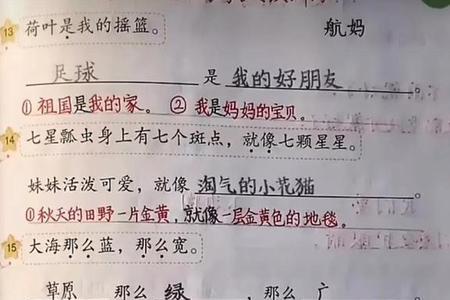 13 荷叶是我的摇篮。 航妈
足球 是 我的好朋友
①祖国是我的家。 ②我是妈妈的宝贝。
14 七星瓢虫身上有七个斑点，就像七颗星星。
妹妹活泼可爱，就像 淘气的小花猫 。
①秋天的田野一片金黄，就像一层金黄色的地毯。
15 大海那么蓝，那么宽。
草原 那么 绿 ，那么 广